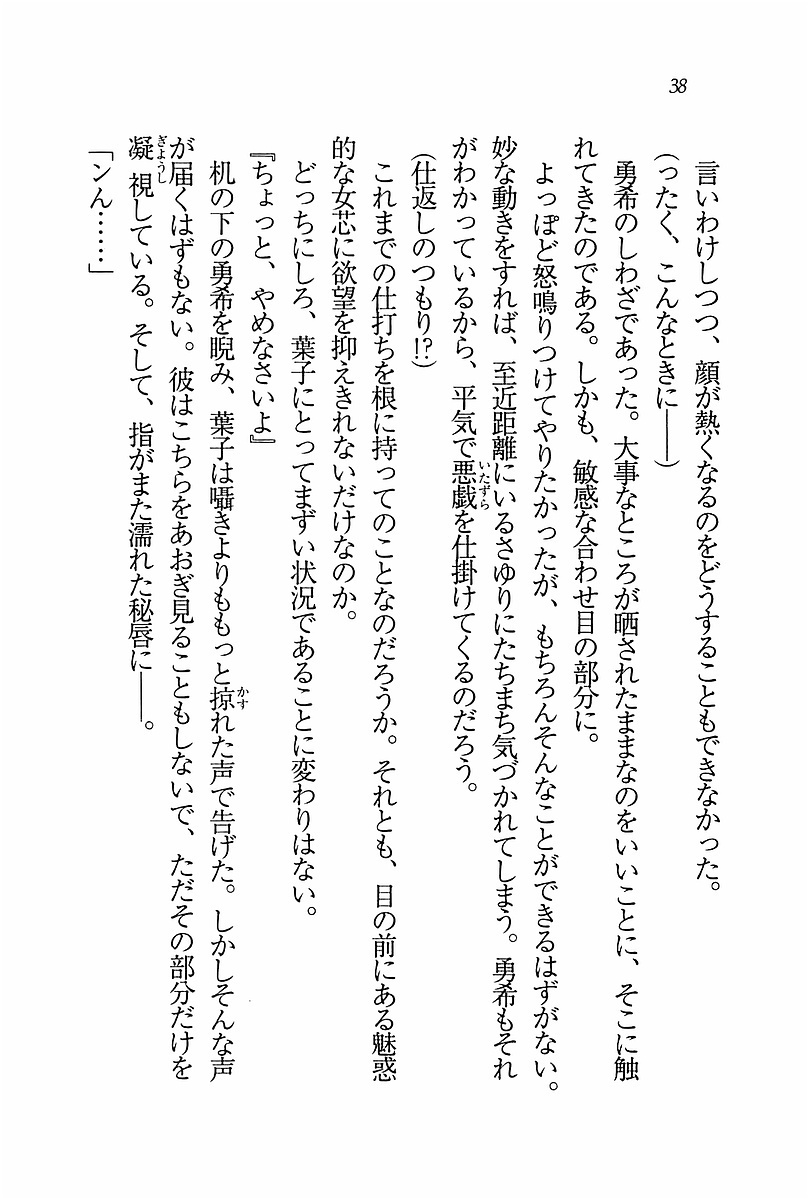 38
言いわけしつつ、顔が熱くなるのをどうすることもできなかった。
（ったく、こんなときに――）
勇希のしわざであった。大事なところが晒されたままなのをいいことに、そこに触
れてきたのである。しかも、敏感な合わせ目の部分に。
よっぽど怒鳴りつけてやりたかったが、もちろんそんなことができるはずがない。
妙な動きをすれば、至近距離にいるさゆりにたちまち気づかれてしまう。勇希もそれ
がわかっているから、平気で悪戯を仕掛けてくるのだろう。
（仕返しのつもり!?）
これまでの仕打ちを根に持ってのことなのだろうか。それとも、目の前にある魅惑
的な女芯に欲望を抑えきれないだけなのか。
どっちにしろ、葉子にとってまずい状況であることに変わりはない。
『ちょっと、やめなさいよ』
机の下の勇希を睨み、葉子は囁きよりももっと掠れた声で告げた。しかしそんな声
が届くはずもない。彼はこちらをあおぎ見ることもしないで、ただその部分だけを
凝視している。そして、指がまた濡れた秘唇に――。
「ンん……」